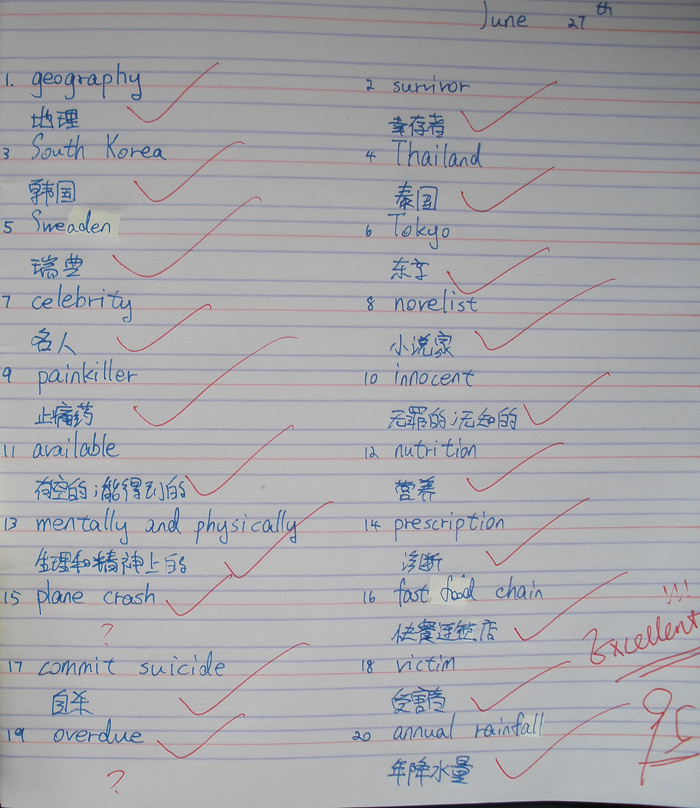 June 27th
1. geography 2 survivor
地理 幸存者
3 South Korea 4 Thailand
韩国 泰国
5 Sweaden 6 Tokyo
瑞典 东京
7 celebrity 8 novelist
名人 小说家
9 painkiller 10 innocent
止痛药 无罪的;无知的
11 available 12 nutrition
有空的;能得到的 营养
13 mentally and physically 14 prescription
生理和精神上的 诊断
15 plane crash 16 fast food chain
? 快餐连锁店
Excellent!!!
17 commit suicide 18 victim
自杀 受害者
19 overdue 20 annual rainfall
? 年降水量
95